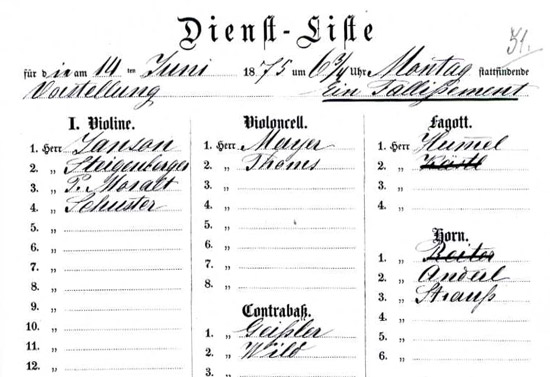 Dienst-Liste
51.
für die am 14 ten Juni 1875 um 6 3/4 Uhr Montag stattfindende
Vorstellung Ein Fallißement
I. Violine.
1. Herr Janson
2. „ Steigenberger
3. „ P. Moralt
4. „ Schuster
5. „
6. „
7. „
8. „
9. „
10. „
11. „
12. „
Violoncell.
1. Herr Mayer
2. „ Thoms
3. „
4. „
5. „
6. „
7. „
8. „
Contrabaß.
1. „ Geißler
2. „ Wild
3. „
Fagott.
1. Herr Hum̄el
2. „
3. „
4. „
Horn.
1. „ Reiter
2. „ Anderl
3. „ Strauß
4. „
5. „
6. „